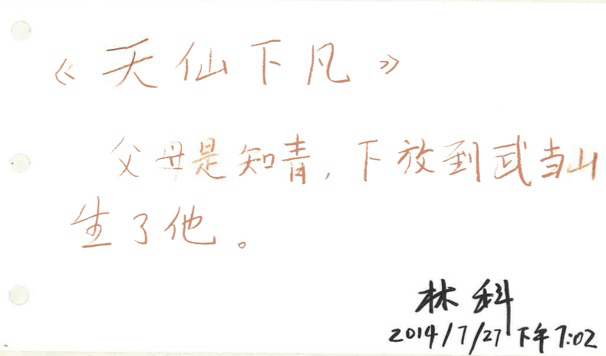 《天仙下凡》
父母是知青，下放到武当山
生了他。
林科
2014/7/27 下午7:02